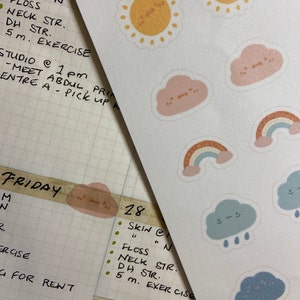 FLOSS
NECK STR.
DH STR.
5 m. EXERCISE
STUDIO @ 1 pm
- MEET ABDUL
CENTRE A - PICK UP
FRIDAY
28
SKIN @
" "
FLOSS
NECK STR.
DH STR.
5 m. EXERCISE
FOR RENT